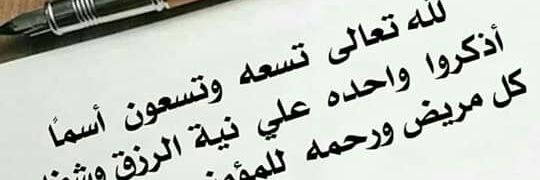 لله تعالى تسعه وتسعون أسماً
أذكروا واحده علي نية الرزق
كل مريض ورحمه